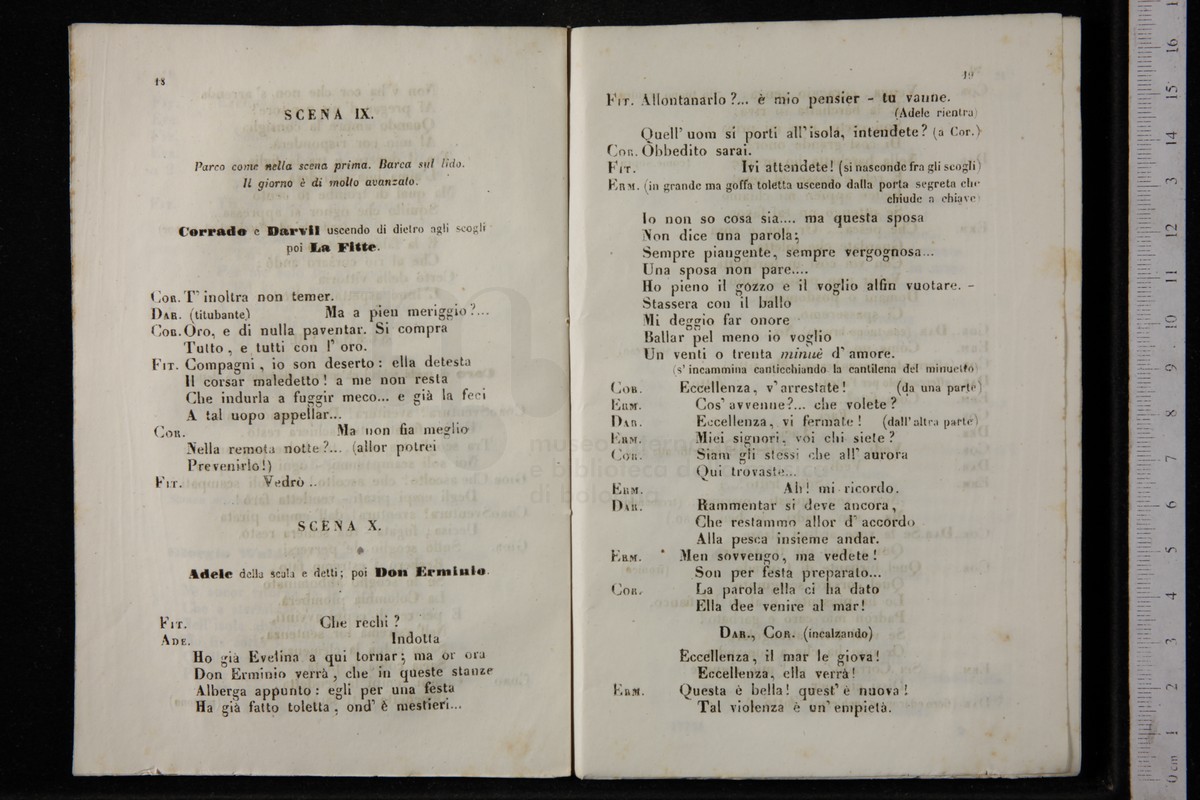 18
SCENA IX.
Parco come nella scena prima. Barca sul lido.
Il giorno è di molto avanzato.
Corrado e Darvil uscendo di dietro agli scogli
poi La Fitte.
Cor. T' inoltra non temer.
Dar. (titubante) Ma a pien meriggio?...
Cor. Oro, e di nulla paventar. Si compra
Tutto, e tutti con l' oro.
Fit. Compagni, io son deserto: ella detesta
Il corsar maledetto! a me non resta
Che indurla a fuggir meco... e già la feci
A tal uopo appellar...
Cor. Ma non fia meglio
Nella remota notte?... (allor potrei
Prevenirlo!)
Fit. Vedrò ..
SCENA X.
Adele della scala e detti; poi Don Erminio.
Fit. Che rechi ?
Ade. Indotta
Ho già Evelina a qui tornar; ma or ora
Don Erminio verrà, che in queste stanze
Alberga appunto: egli per una festa
Ha già fatto toletta, ond' è mestieri...
19
Fit. Allontanarlo?... è mio pensier - tu vanne.
(Adele rientra)
Quell' uom si porti all' isola, intendete? (a Cor.)
Cor. Obbedito sarai.
Fit. Ivi attendete! (si nasconde fra gli scogli)
Erm. (in grande ma goffa toletta uscendo dalla porta segreta che
chiude a chiave)
Io non so cosa sia.... ma questa sposa
Non dice una parola;
Sempre piangente, sempre vergognosa...
Una sposa non pare....
Ho pieno il gozzo e il voglio alfin vuotare. -
Stassera con il ballo
Mi deggio far onore
Ballar pel meno io voglio
Un venti o trenta minuè d' amore.
(s' incammina canticchiando la cantilena del minuetto)
Cor. Eccellenza, v' arrestate! (da una parte)
Erm. Cos' avvenne?... che volete?
Dar. Eccellenza, vi fermate! (dall' altra parte)
Erm. Miei signori, voi chi siete?
Cor. Siam gli stessi che all' aurora
Qui trovaste...
Erm. Ah! mi ricordo.
Dar. Rammentar si deve ancora,
Che restammo allor d' accordo
Alla pesca insieme andar.
Erm. Men sovvengo, ma vedete!
Son per festa preparato...
Cor. La parola ella ci ha dato
Ella dee venire al mar!
Dar., Cor. (incalzando)
Eccellenza, il mar le giova!
Eccellenza, ella verrà!
Erm. Questa è bella! quest' è nuova!
Tal violenza è un' empietà.
museo internazionale
e biblioteca della musica
di bologna
0 cm 1 2 3 4 5 6 7 8 9 10 11 12 13 14 15 16